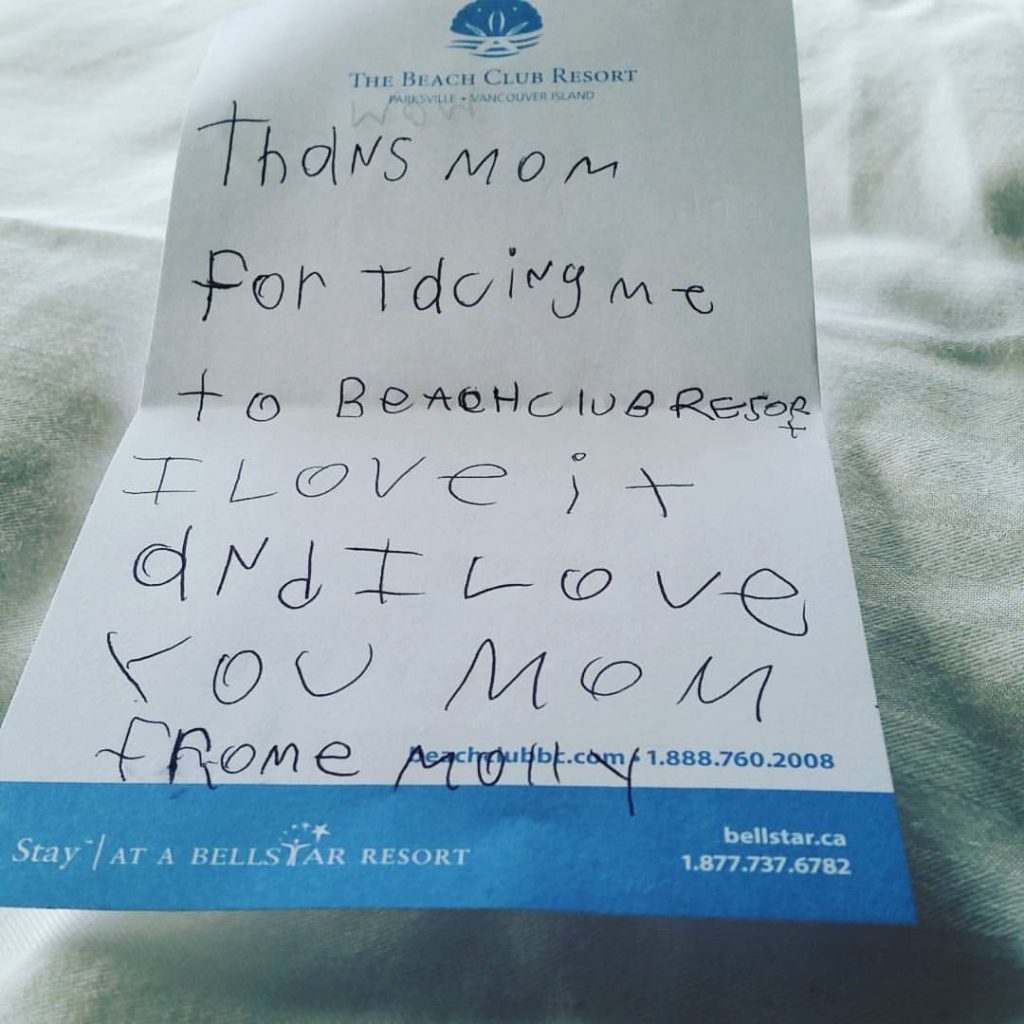 THE BEACH CLUB RESORT
PARKSVILLE • VANCOUVER ISLAND
WOW
Thans MOM
For Tacing me
to BeAcHcluB RESORt
I LOVe it
aNd I Love
YOU MOM
fROMe MOllY
beachclubbc.com • 1.888.760.2008
Stay | AT A BELLSTAR RESORT
bellstar.ca
1.877.737.6782